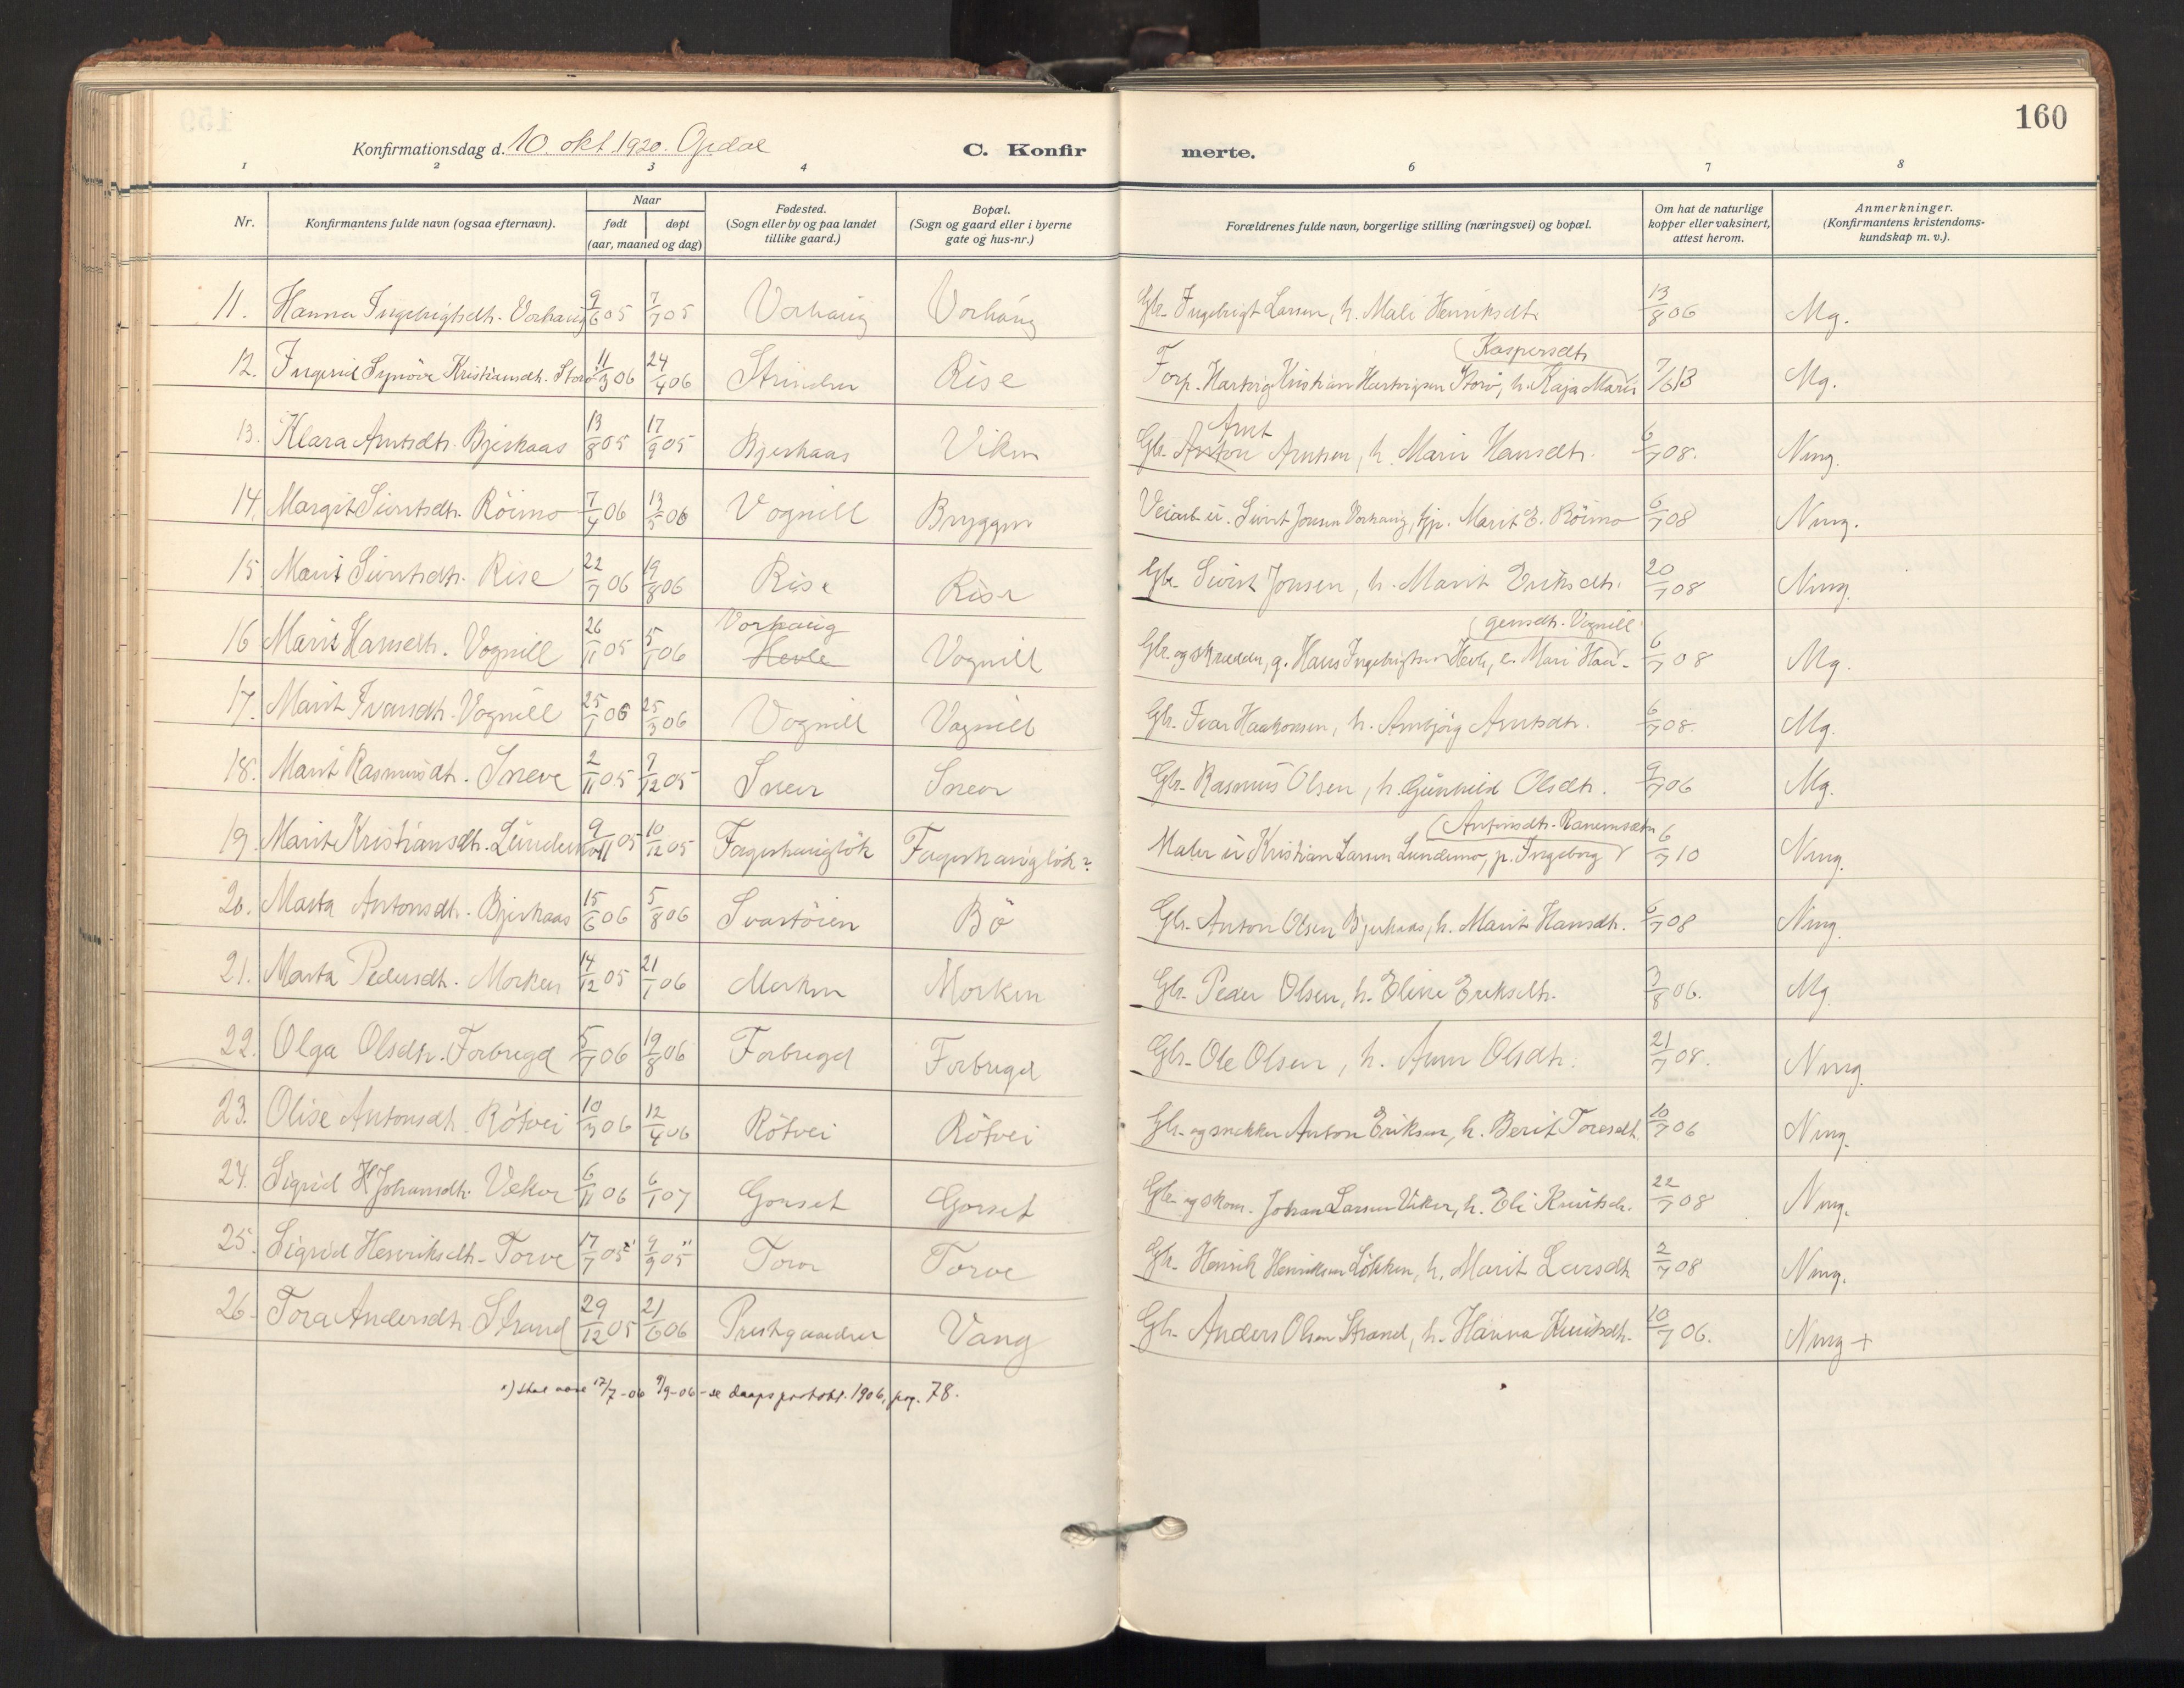 160
Konfirmationsdag d. 10. okt. 1920. Opdal
C. Konfirmerte.
1 2 3 4 6 7 8
Nr. Konfirmantens fulde navn (ogsaa efternavn). Naar født døpt (aar, maaned og dag) Fødested. (Sogn eller by og paa landet tillike gaard.) Bopæl. (Sogn og gaard eller i byerne gate og hus-nr.) Forældrenes fulde navn, borgerlige stilling (næringsvei) og bopæl. Om hat de naturlige kopper eller vaksinert, attest herom. Anmerkninger. (Konfirmantens kristendomskundskap m. v.).
11. Hanna Ingebrigtsdtr. Vorhaug 9/6 05 7/7 05 Vorhaug Vorhaug Gbr. Ingebrigt Larsen, h. Mali Henriksdtr. 13/8 06 Mg.
12. Ingerid Synöve Kristiansdtr. Storö 11/3 06 24/4 06 Strinden Rise Forp. Hartvig Kristian Hartvigsen Storö, h. Kaja Marie Kaspersdtr. 7/6 13 Mg.
13. Klara Arntsdtr. Bjerkaas 13/8 05 17/9 05 Bjerkaas Viken Gbr. Anton Arnt Arntsen, h. Marie Hansdtr. 6/7 08. Nmg.
14. Margit Sivertsdtr. Röimo 7/4 06 13/5 06 Vognill Bryggen Veiarb. u. Sivert Jonsen Vorhaug, Marit E. Röimo 6/7 08 Nmg.
15 Marit Sivertsdtr. Rise 22/7 06 19/8 06 Rise Rise Gbr. Sivert Jonsen, h. Marit Eriksdtr. 20/7 08 Nmg.
16 Marit Hansdtr. Vognill 26/11 05 5/1 06 Vorhaug Hevle Vognill Gbr. og skrædder, g. Hans Ingebrigtsen Hevle, e. Mari Haagensdtr. Vognill 6/7 08 Mg.
17. Marit Ivarsdtr. Vognill 25/1 06 25/3 06 Vognill Vognill Gbr. Ivar Haakonsen, h. Arnbjörg Arntsdtr. 6/7 08. Mg.
18. Marit Rasmusdtr. Sneve 2/11 05 7/12 05 Sneve Sneve Gbr. Rasmus Olsen, h. Gunhild Olsdtr. 9/7 06 Mg.
19. Marit Kristiansdtr. Lundemo 9/11 05 10/12 05 Fagerhauglök Fagerhauglök? Maler u. Kristian Larsen Lundemo, p. Ingeborg Antonsdtr. Ranemsætr 6/7 10 Nmg.
20. Marta Antonsdtr. Bjerkaas 15/6 06 5/8 06 Svartöien Bö Gbr. Anton Olsen Bjerkaas, h. Marit Hansdtr. 6/7 08 Nmg.
21. Marta Pedersdtr. Morken 14/12 05 21/1 06 Morken Morken Gbr. Peder Olsen, h. Eline Eriksdtr. 3/8 06. Mg.
22. Olga Olsdtr. Forbregd 5/7 06 19/8 06 Forbregd Forbregd Gbr. Ole Olsen, h. Anne Olsdtr. 21/7 08. Nmg.
23. Olise Antonsdtr. Rötvei 10/3 06 12/4 06 Rötvei Rötvei Gbr. og snekker Anton Eriksen, h. Berit Toresdtr. 10/7 06 Nmg.
24. Sigrid H. Johansdtr. Veker 6/11 06 6/1 07 Gorset Gorset Gbr. og skom. Johan Larsen Veker, h. Eli Knutsdr. 22/7 08 Nmg.
25. Sigrid Henriksdtr. Torve 17/7 05 9/9 05 Torve Torve Gbr. Henrik Henriksen Lökken, h. Marit Larsdtr 2/7 08 Nmg.
26. Tora Andersdtr. Strand 29/12 05 21/6 06 Prestgaarden Vang Gbr. Anders Olsen Strand, h. Hanna Knutsdtr. 10/7 06. Nmg +
x) skal være 17/7-06 9/9-06 - se daapsprotokl. 1906, pag. 78.